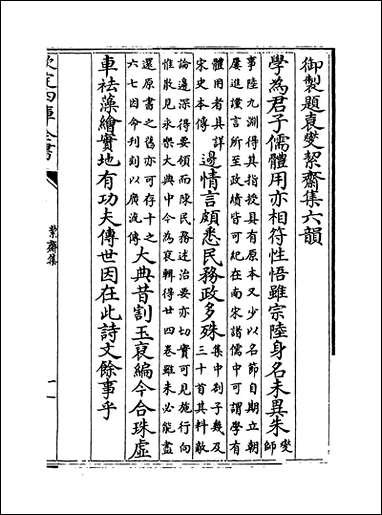 御製題袁燮絜齋集六韻
學為君子儒體用亦相符性悟雖宗陸身名未異朱燮師
事陸九淵得其指授具有原本又少以名節自期立朝
屢進讜言所至政績皆可紀在南宋諸儒中可謂學有
體用者具詳
宋史本傳
邊情言頗悉民務政多殊集中劄子幾及
三十首其料敵
論邊深得要領而陳民務述治要亦切實可見施行向
惟散見永樂大典中今為裒輯得廿四卷雖未必能盡
還原書之舊亦可存十之
六七因命刊刻以廣流傳
大典昔割玉裒編今合珠虛
車袪藻繪實地有功夫傳世因在此詩文餘事乎
欽定四庫全書
絜齋集
一